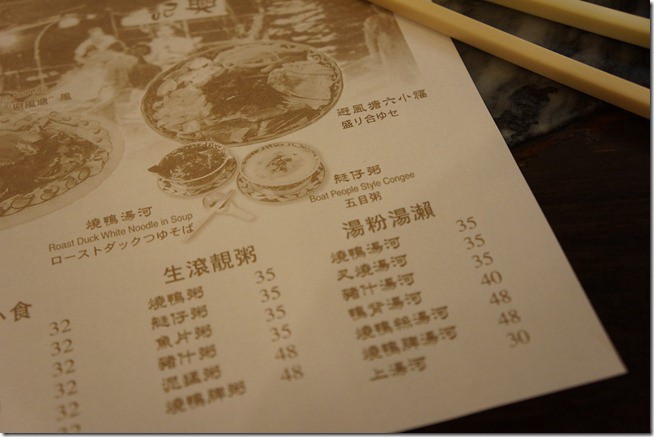 避風塘六小福
盛り合ゆせ
艇仔粥
Boat People Style Congee
五目粥
燒鴨湯河
Roast Duck White Noodle in Soup
ローストダックつゆそば
小食
32
32
32
32
32
生滾靚粥
燒鴨粥 35
艇仔粥 35
魚片粥 35
豬什粥 35
泥鯭粥 48
燒鴨脾粥 48
湯粉湯瀨
燒鴨湯河 35
叉燒湯河 35
豬什湯河 35
鴨背湯河 40
燒鴨湯河 48
燒鴨脾湯河 48
上湯河 30